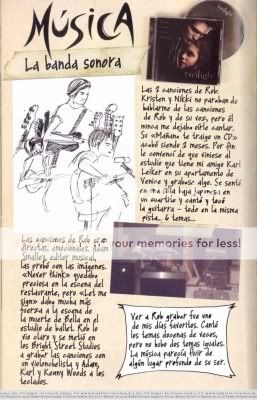 MÚSICA
La banda sonora
twilight
Las 2 canciones de Rob.
Kristen y Nikki no paraban de
hablarme de las canciones
de Rob y de su voz, pero él
nunca me dejaba oírle cantar.
Su «Mañana te traigo un CD»
acabó siendo 2 meses. Por fin
le convencí de que viniese al
estudio que tiene mi amigo Karl
Leiker en su apartamento de
Venice y grabase algo. Se sentó
en una silla baja japonesa en
un cuartito y cantó y tocó
la guitarra - todo en la misma
pista... 6 temas...
Las canciones de Rob eran
directas, emocionales. Adam
Smalley, editor musical,
las probó con las imágenes.
«Never think» quedaba
preciosa en la escena del
restaurante, pero «Let me
sign» daba mucha más
fuerza a la escena de
la muerte de Bella en el
estudio de ballet. Rob lo
vio claro y se metió en
los Bright Street Studios
a grabar las canciones con
un violonchelista y Adam,
Karl y Kenny Woods a los
teclados.
your memories for less!
Ver a Rob grabar fue uno
de mis días favoritos. Cantó
los temas docenas de veces,
pero no hubo dos tomas iguales.
La música parecía fluir de
algún lugar profundo de su ser.